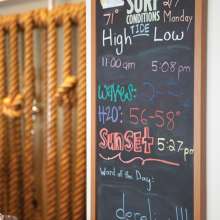 SURF
71° CONDITIONS 27
TIDE Monday
High Low
11:00am 5:08pm
Waves: 2-3
H2O: 56-58°
SUNSET 5:27pm
Word of the Day: